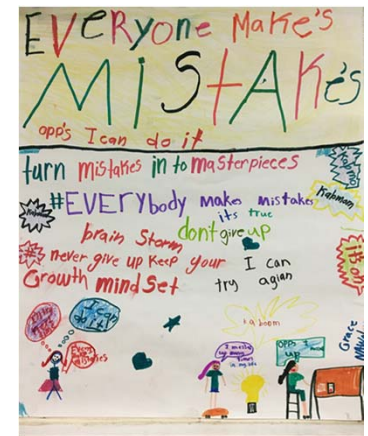 EVERyone MAke's
MiStAKe's
opp's I can do it
turn mistakes in to masterpieces
#EVERybody makes mistakes
Kahman
it's true
brain Storm
dont give up
# never give up keep your
Growth mindSet
I can
try agian
I can
do it!
kaboom
Grace
opps I
up